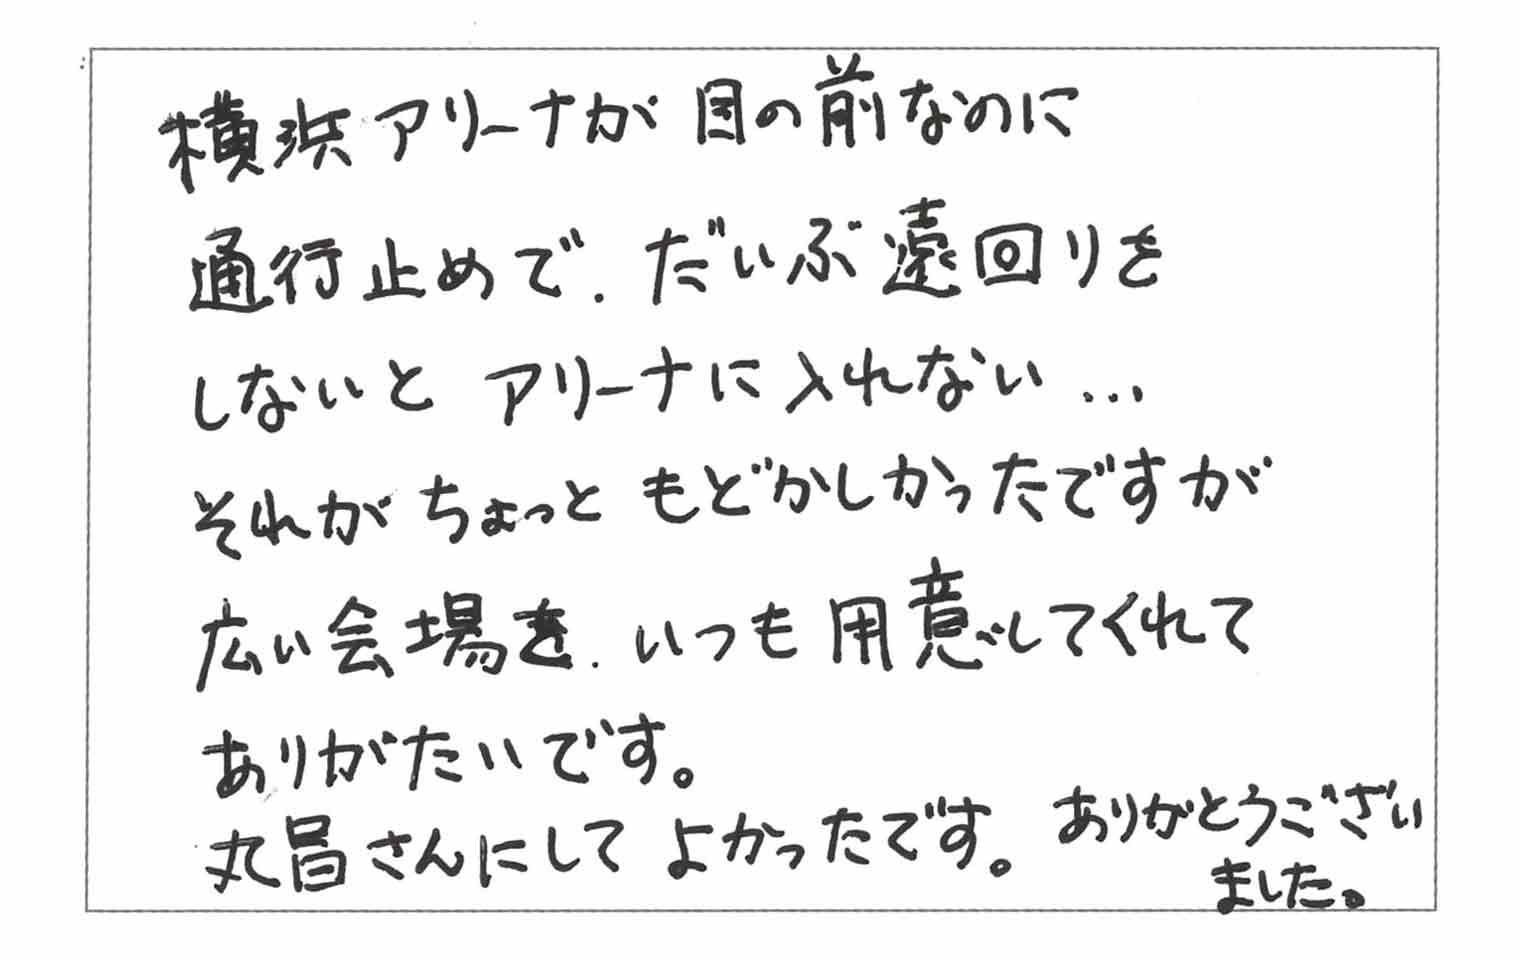 横浜アリーナが目の前なのに
通行止めで、だいぶ遠回りを
しないと アリーナに入れない…
それがちょっと もどかしかったですが
広い会場を、いつも用意してくれて
ありがたいです。
丸昌さんにして よかったです。 ありがとうござい
ました。